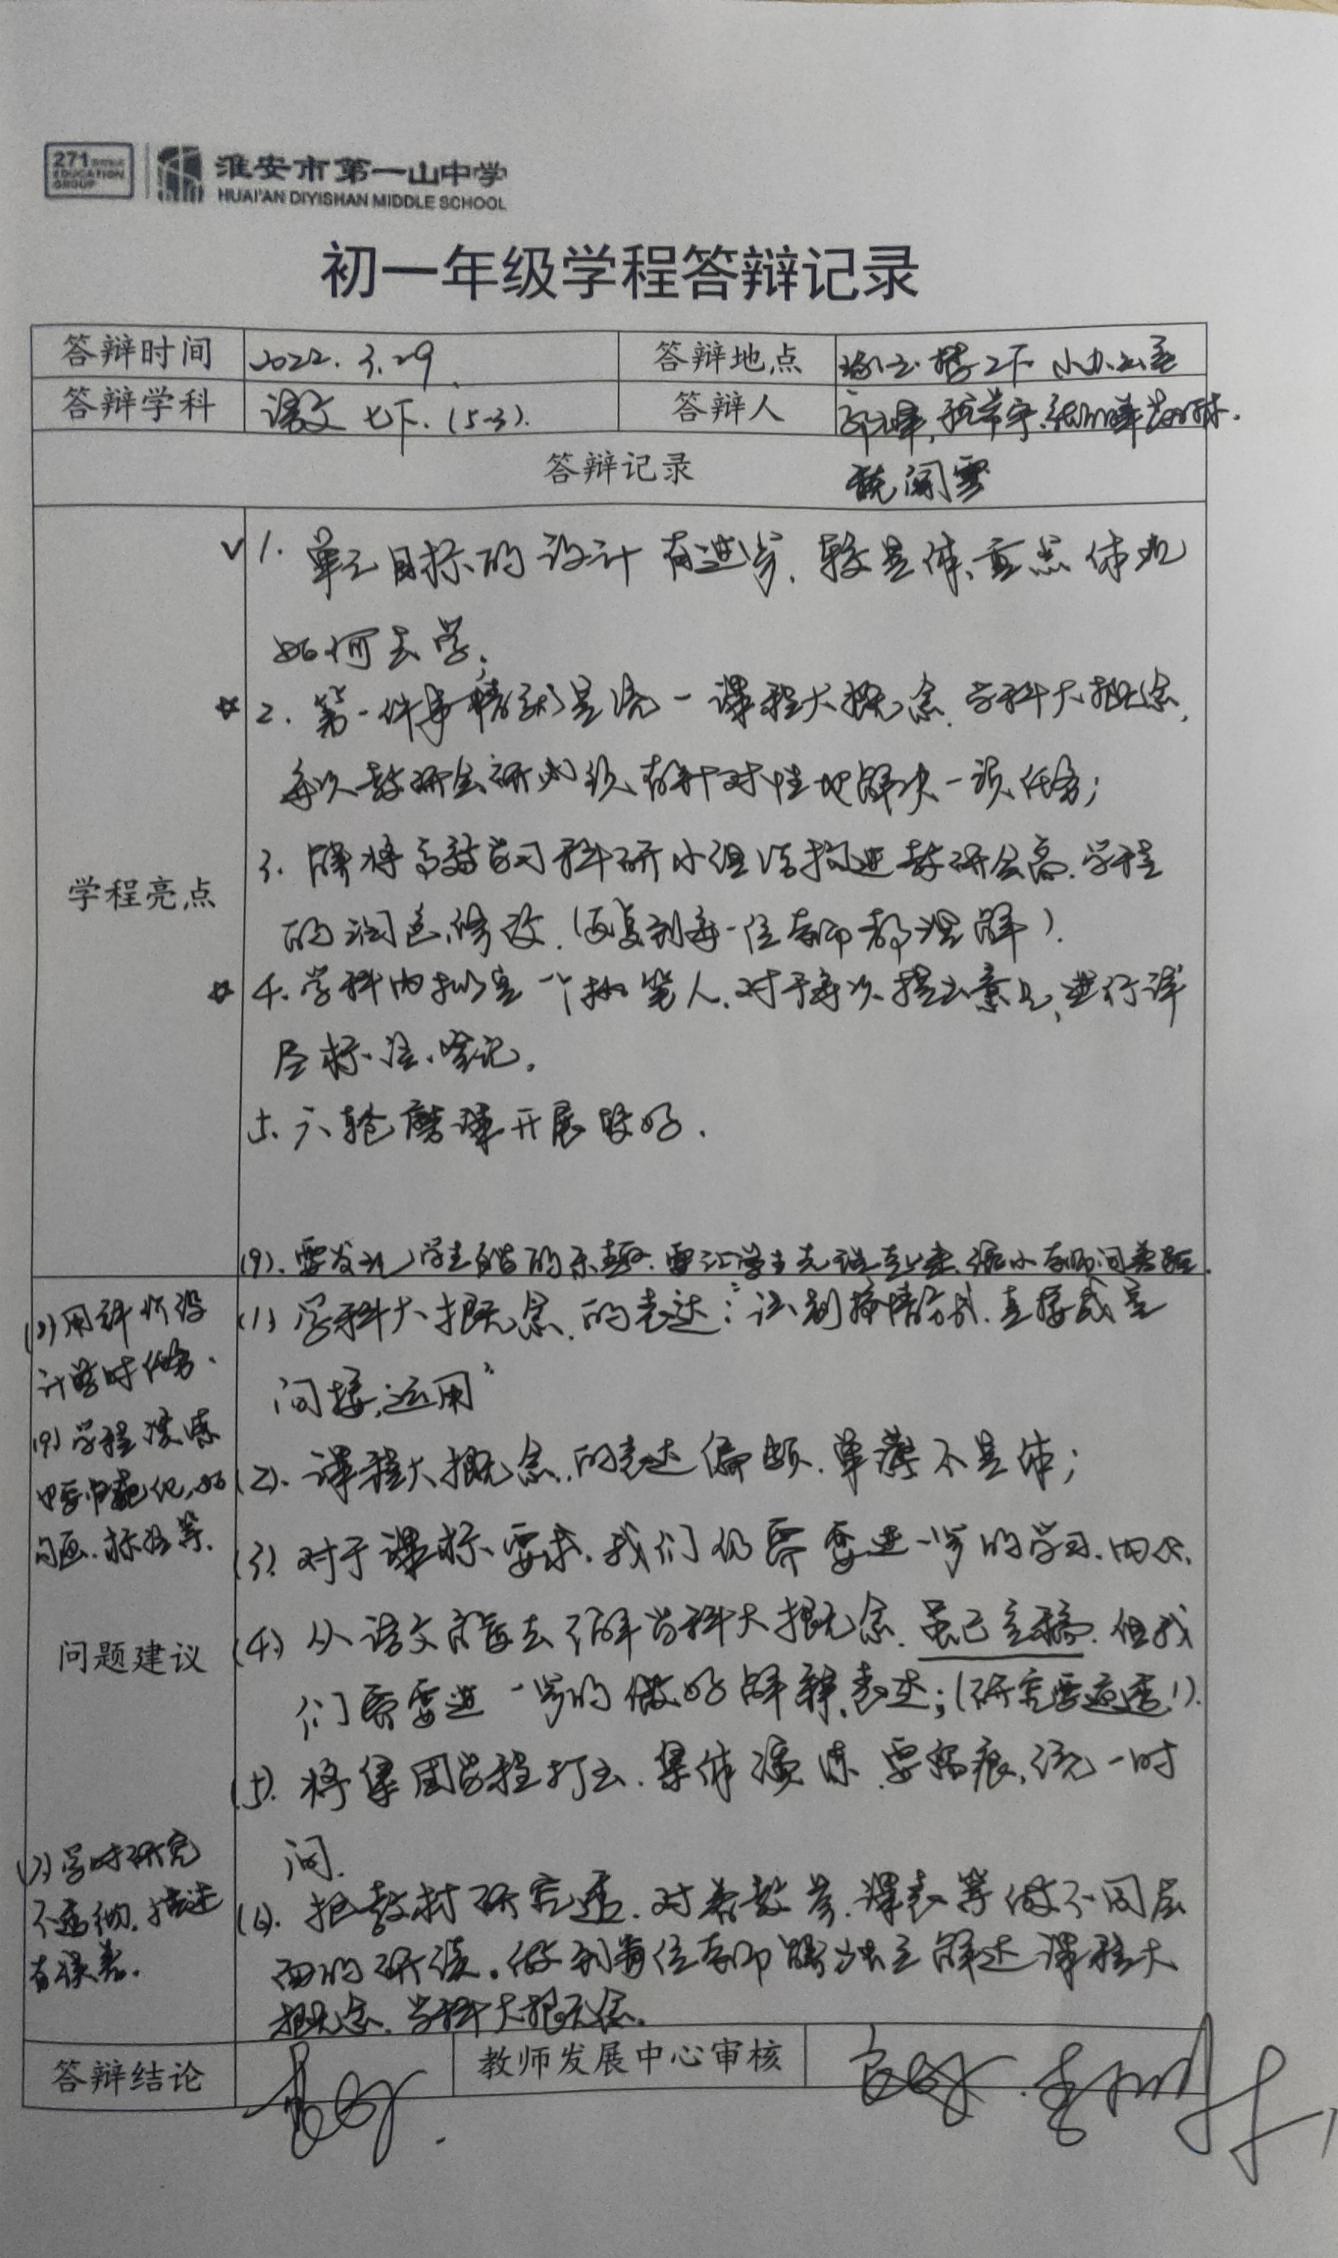 271
EDUCATION
GROUP
淮安市第一山中学
HUAI'AN DIYISHAN MIDDLE SCHOOL
初一年级学程答辩记录
答辩时间 2022.3.29. 答辩地点 楼2下 小办公室
答辩学科 语文 七下.(5-3). 答辩人
答辩记录
学程亮点
1. 单元目标的设计有进步、较具体、重点体现
如何去学;
2. 第一件事情就是统一课程大概念、学科大概念,
每次教研会研必须有针对性地解决一项任务;
3. 能将高效学习科研小组结构进教研会高.学程
的润色修改.(反复到每一位老师都理解).
4. 学科内拟定一个执笔人.对于每次提出意见,进行详
尽标注、笔记.
5. 六轮磨课开展较好.
(9). 要发现学生的乐趣.要让学生先说起来.
(1) 学科大概念的表达:“法则抒情方式.直接或是
间接,运用”
(2). 课程大概念的表达偏颇.单薄不具体;
(3). 对于课标要求.我们仍需要进一步的学习.内化.
(4) 从语文角度去理解学科大概念.虽已主稿.但我
们需要进一步的做好解释.表达;(研究要透!).
(5). 将集团学程打出.集体演练.要留痕,统一时
间.
(6). 把教材研究透.对着教参.课表等做不同层
面的研读.做到每位老师能独立解述课程大
概念.学科大概念.
(8)用评价设
计学时任务.
(9)学程演练
中要规范化,如
勾画.标注等.
问题建议
(7)学时研究
不透彻.描述
有误差.
答辩结论 教师发展中心审核